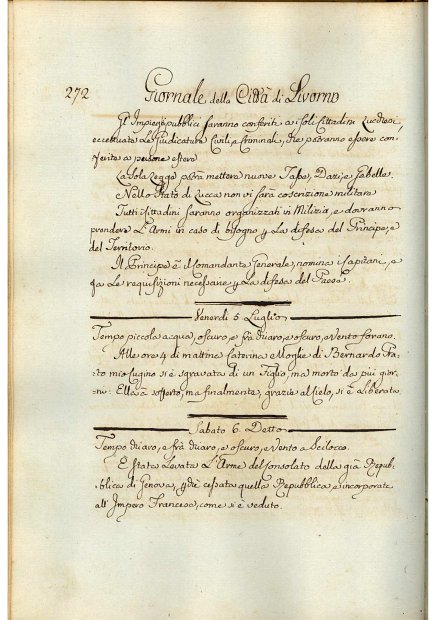 272 Giornale della Città di Livorno
Gl'Impieghi pubblici saranno conferiti a i soli Cittadini Lucchesi
eccettuate Le Giudicature Civili, e Criminali, che potranno essere con,
ferite a persone estere
La sola Legge potrà mettere nuove Tasse, Dazi, e Gabelle.
Nello Stato di Lucca non vi sarà coscrizione militare
Tutti i Cittadini saranno organizzati in Milizia, e dovranno
prendere L'Armi in caso di bisogno p La difesa del Principe, e
del Territorio.
Il Principe è il Comandante Generale, nomina i Capitani, e
fa Le requisizioni necessarie p La difesa del Paese.
Venerdì 5. Luglio
Tempo piccola acqua, oscuro, e frà chiaro, e oscuro, e Vento forano.
Alle ore 4 di mattina Caterina Moglie di Bernardo Pra,
to mio cugino si è sgravata di un Figlio, ma morto da più gior,
ni: Ella à sofferto, ma finalmente, grazie al Cielo, si è Liberata.
Sabato 6. Detto
Tempo chiaro, e frà chiaro, e oscuro, e Vento a Scilocco.
È stata Levata L'Arme del Consolato della già Repub,
blica di Genova, p chè cessata quella Repubblica e incorporata
all'Impero Francese, come si è veduto.